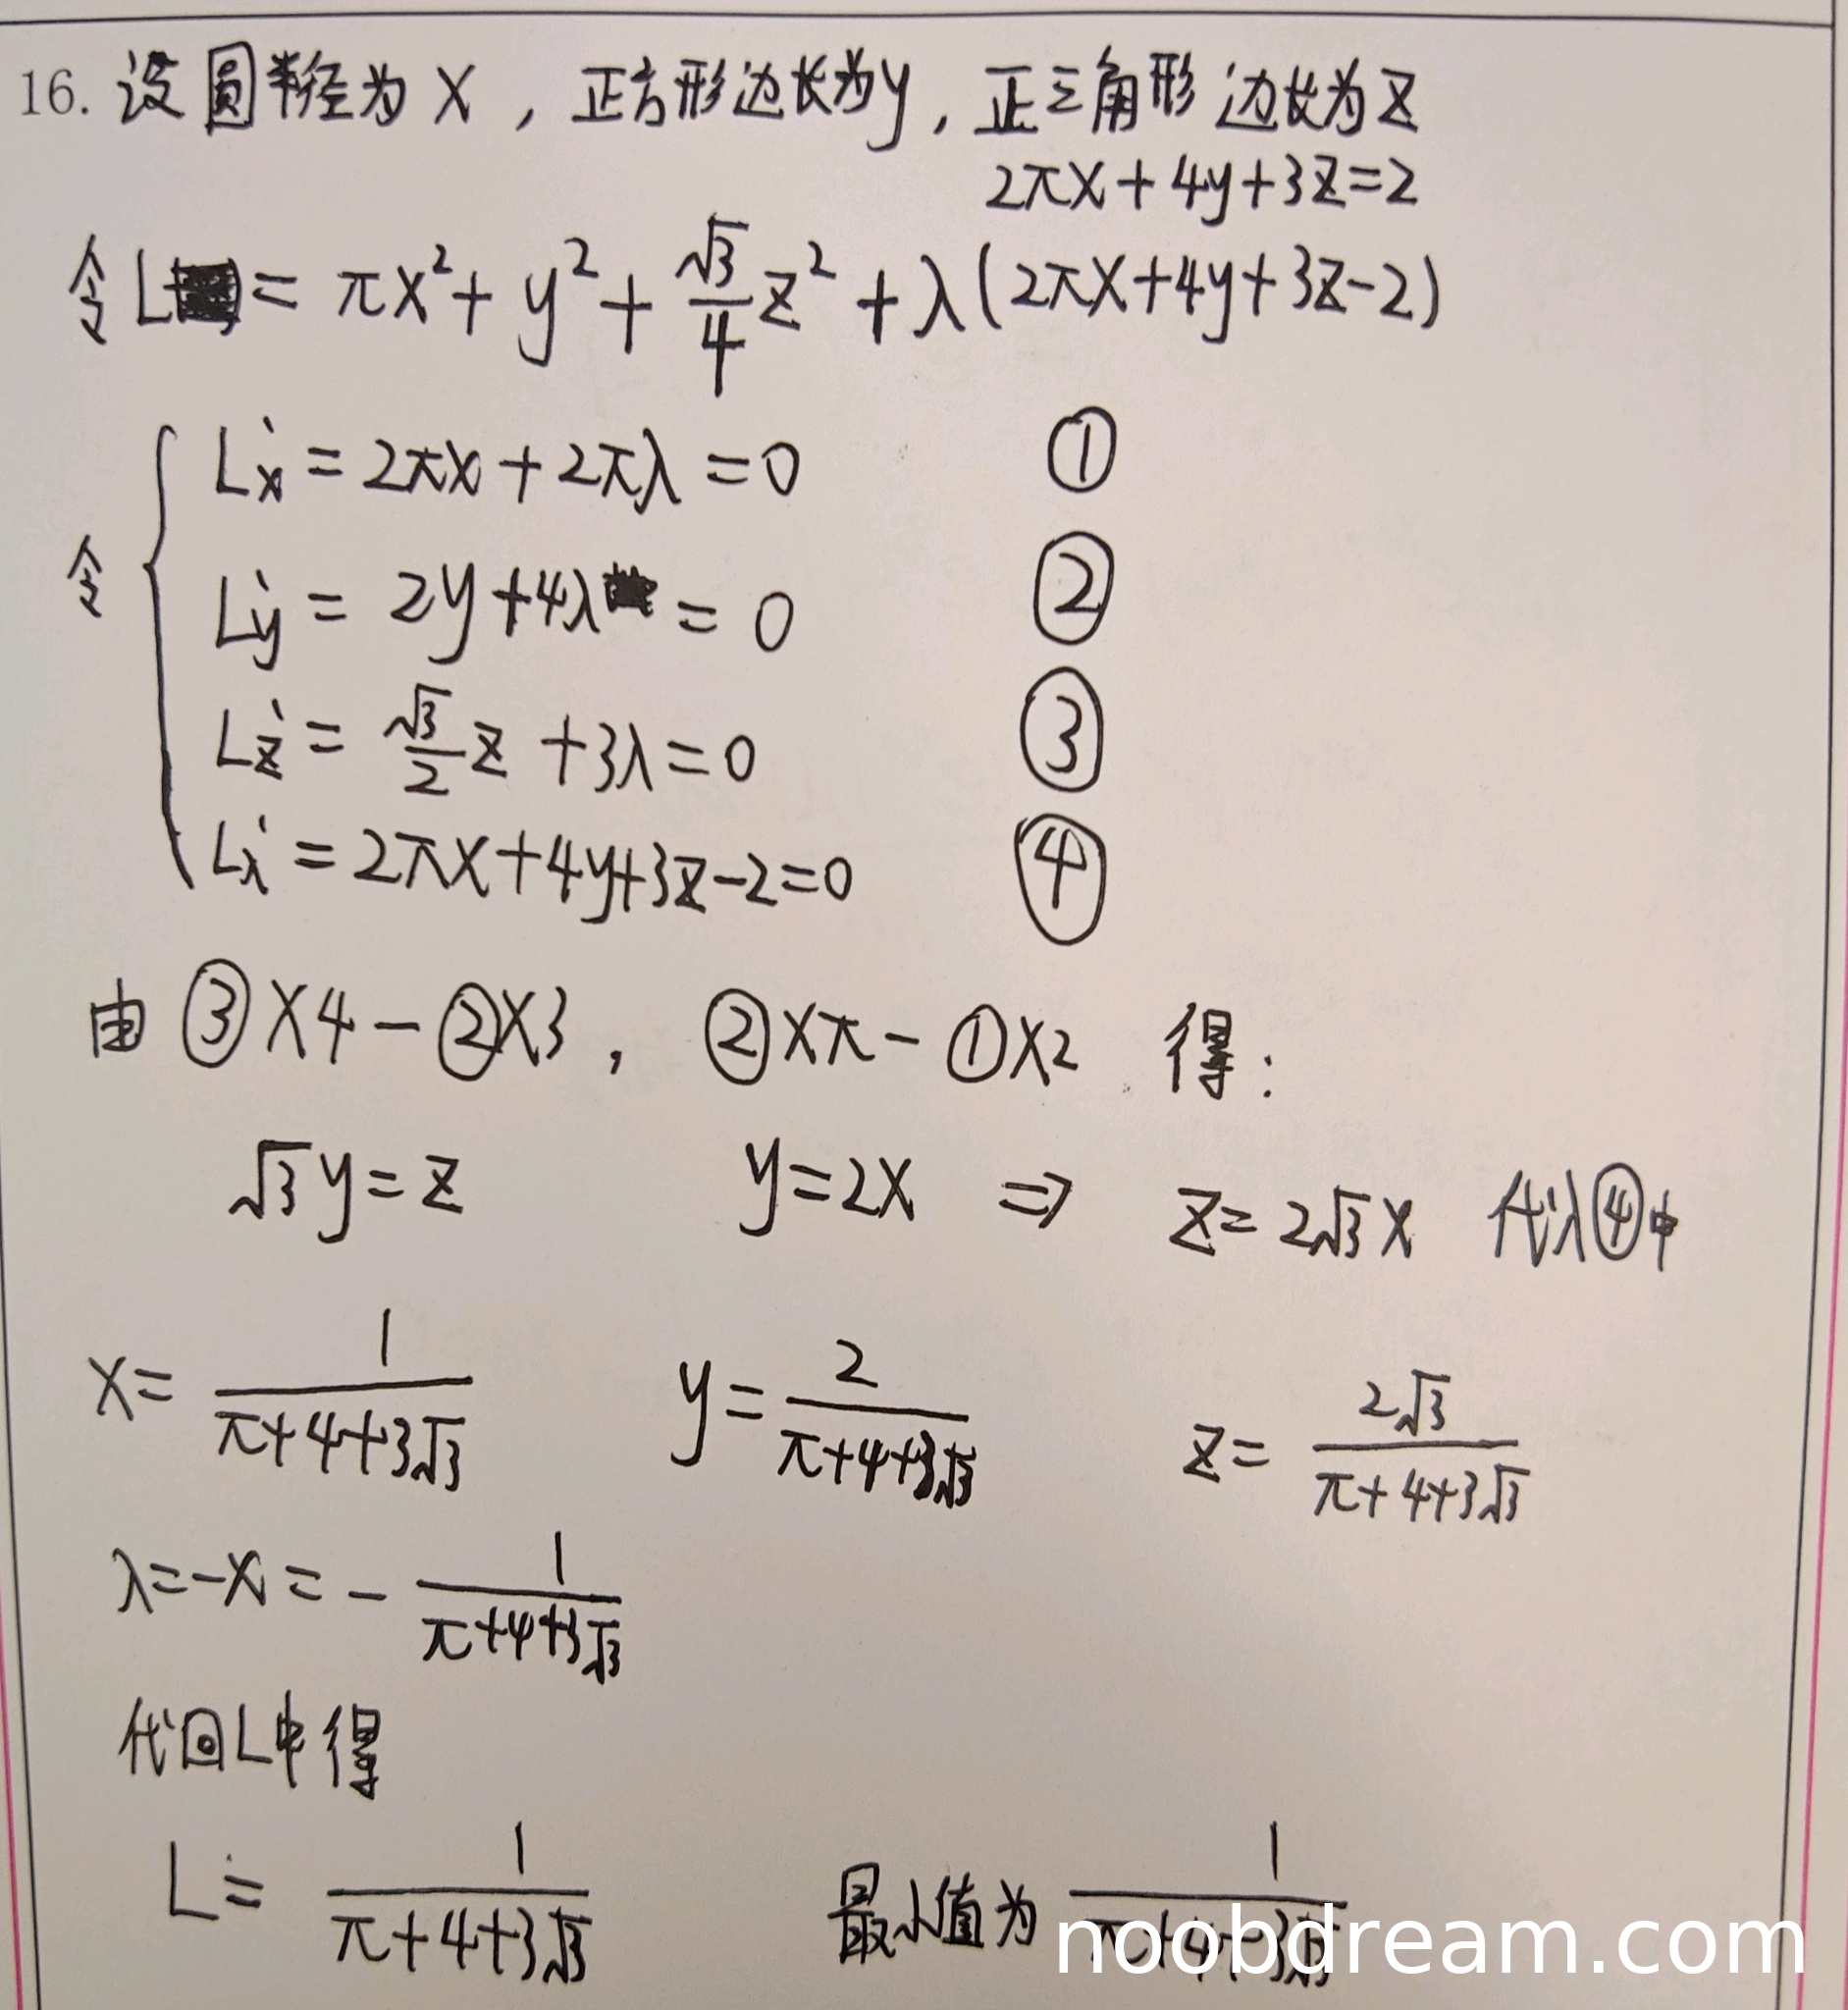 16. 设圆半径为x，正方形边长为y，正三角形边长为z
2πx+4y+3z=2
令L = πx²+y²+√3/4 z²+λ(2πx+4y+3z-2)
令 { L'x = 2πx+2πλ=0 ①
L'y = 2y+4λ = 0 ②
L'z = √3/2 z +3λ=0 ③
L'λ = 2πx+4y+3z-2=0 ④
由 ③×4-②×3， ②×π-①×2 得：
√3y=z y=2x ⇒ z=2√3x 代入④中
x= 1/(π+4+3√3) y= 2/(π+4+3√3) z= 2√3/(π+4+3√3)
λ=-x=- 1/(π+4+3√3)
代回L中得
L= 1/(π+4+3√3) 最小值为 1/(π+4+3√3)
noobdream.com